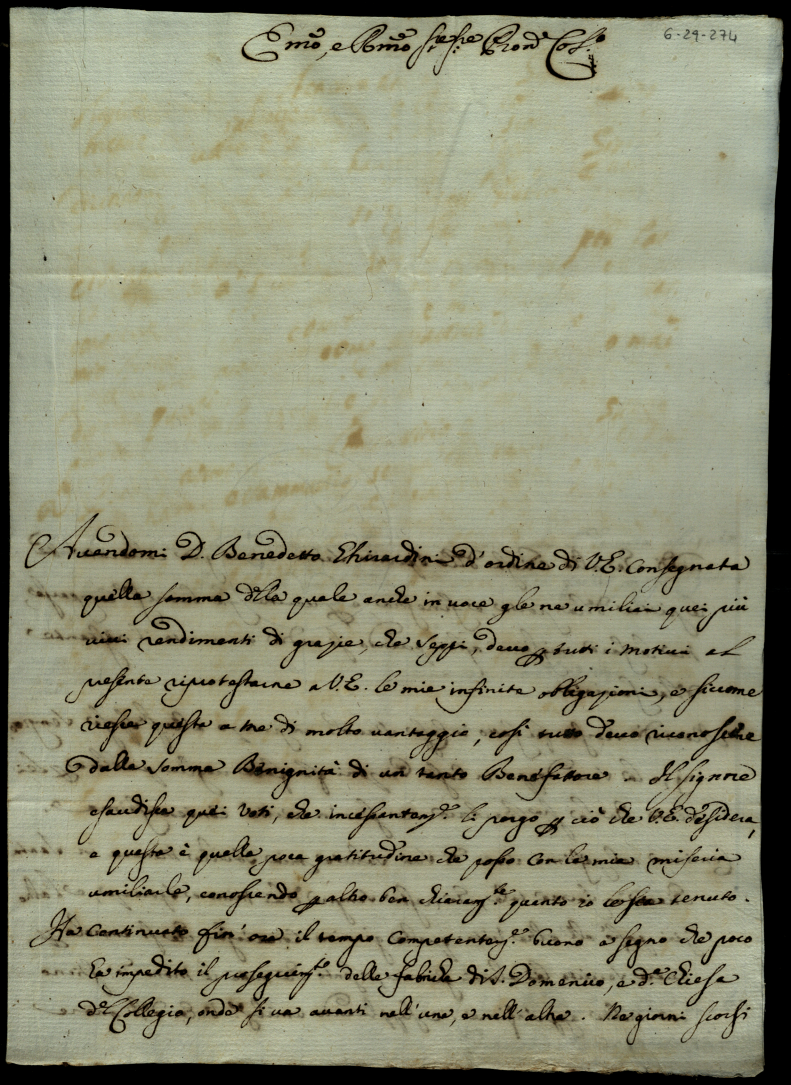 6-29-274
Emo, e Rmo Sre Sre Pron. Col.
Avendomi D. Benedetto Ghirardini d'ordine di V.E. consegnata
quella somma della quale anche in voce gle ne umiliai quei più
vivi rendimenti di grazie, che seppi, devo p tutti i motivi al
presente riprotestarne a V.E. le mie infinite obbligazioni, e siccome
riesce questa a me di molto vantaggio, così tutto devo riconoscere
dalla somma Benignità di un tanto Benefatore. Il Signore
esaudisca quei Voti, che incessantemte. li porgo p ciò che V.E. desidera,
e questa è quella poca gratitudine che posso con la mia miseria
umiliarle, conoscendo p altro ben chiaramte. quanto io le sia tenuto.
Ha continuato fin' ora il tempo competentemte. buono a segno che poco
ha impedito il proseguimto. della fabrica di S. Domenico, e da. Chiesa
del Collegio, onde si va avanti nell'una, e nell'altra. Ne giorni scorsi